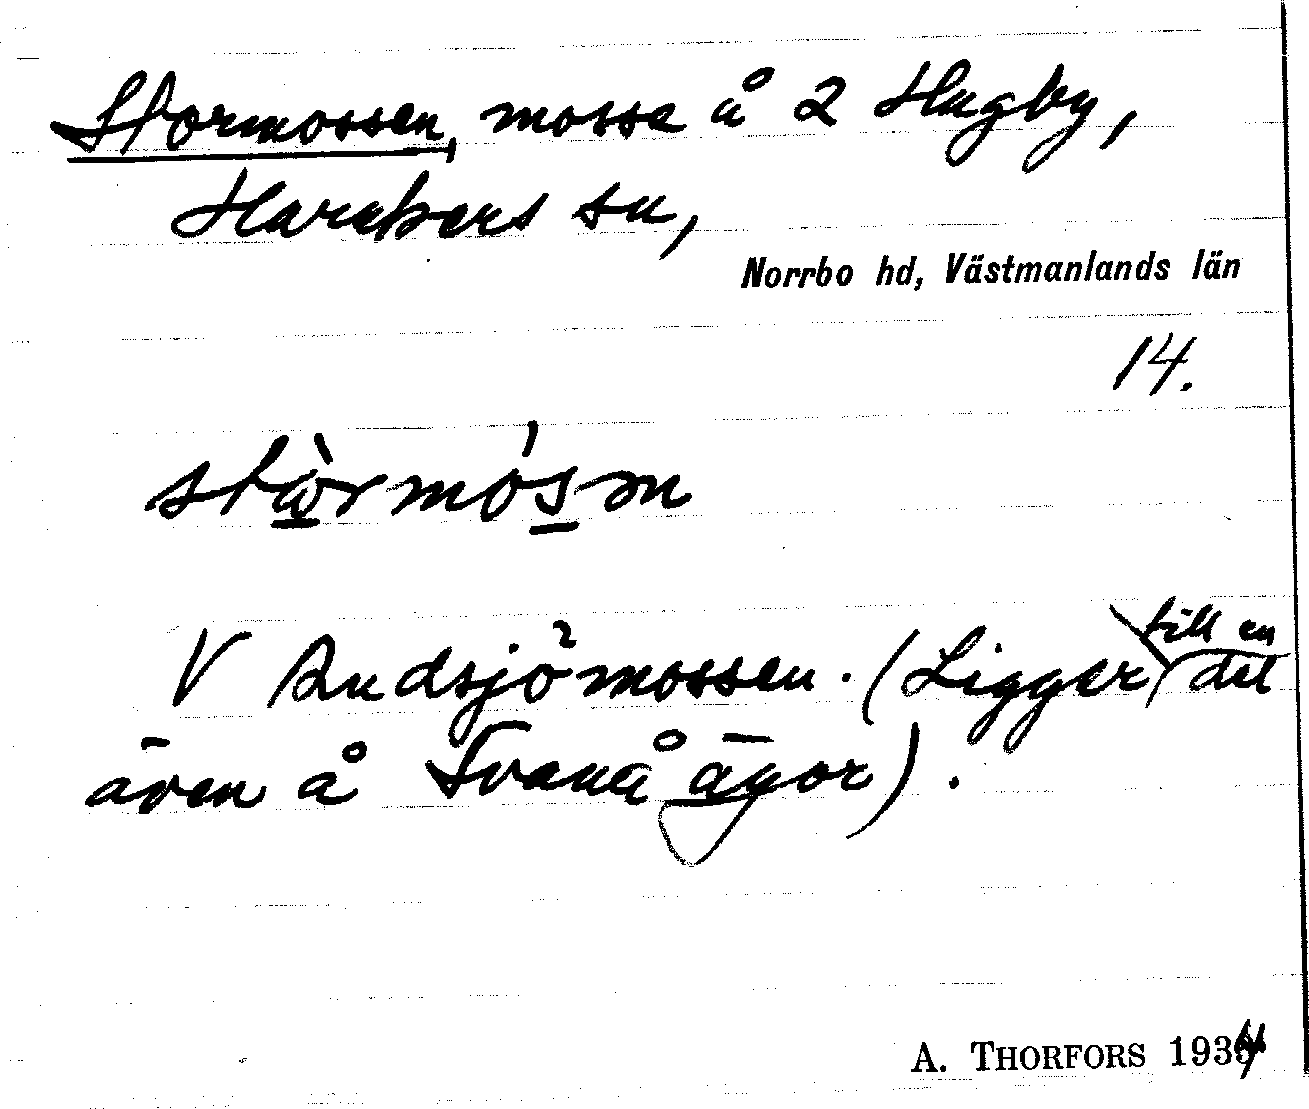 Stormossen, mosse å 2 Hugby,
Harakers sn,
Norrbo hd, Västmanlands län
14.
stòrmósm
V Rudsjömossen. (Ligger till en del
även å Svanå ägor).
A. THORFORS 1934